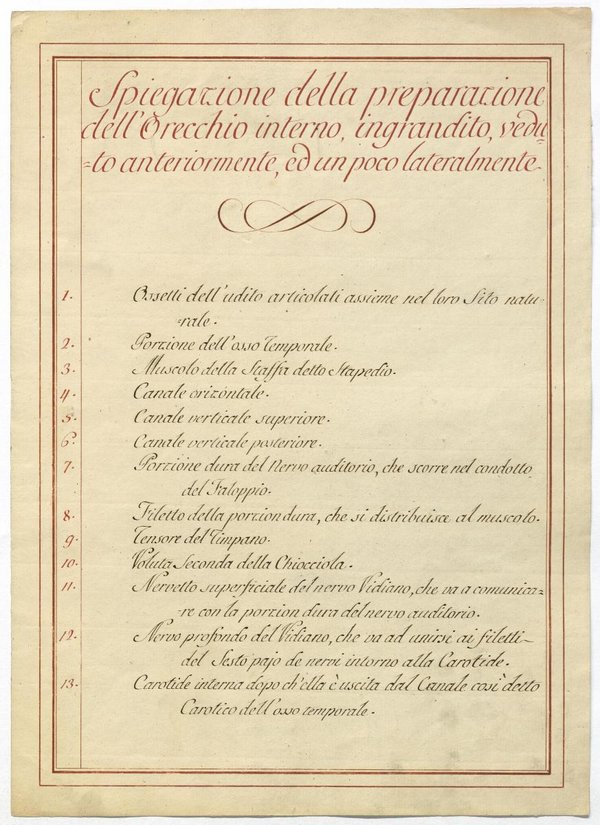 Spiegazione della preparazione
dell'Orecchio interno, ingrandito, vedu-
-to anteriormente, ed un poco lateralmente.
1. Ossetti dell'udito articolati assieme nel loro Sito natu-
-rale.
2. Porzione dell'osso Temporale.
3. Muscolo della Staffa detto Stapedio.
4. Canale orizontale.
5. Canale verticale superiore.
6. Canale verticale posteriore.
7. Porzione dura del Nervo auditorio, che scorre nel condotto
del Faloppio.
8. Filetto della porzion dura, che si distribuisce al muscolo.
9. Tensore del Timpano.
10. Voluta Seconda della Chiocciola.
11. Nervetto superficiale del nervo Vidiano, che va a comunica-
-re con la porzion dura del nervo auditorio.
12. Nervo profondo del Vidiano, che va ad unirsi ai filetti
del Sesto pajo de nervi intorno alla Carotide.
13. Carotide interna dopo ch'ella è uscita dal Canale così detto
Carotico dell'osso temporale.